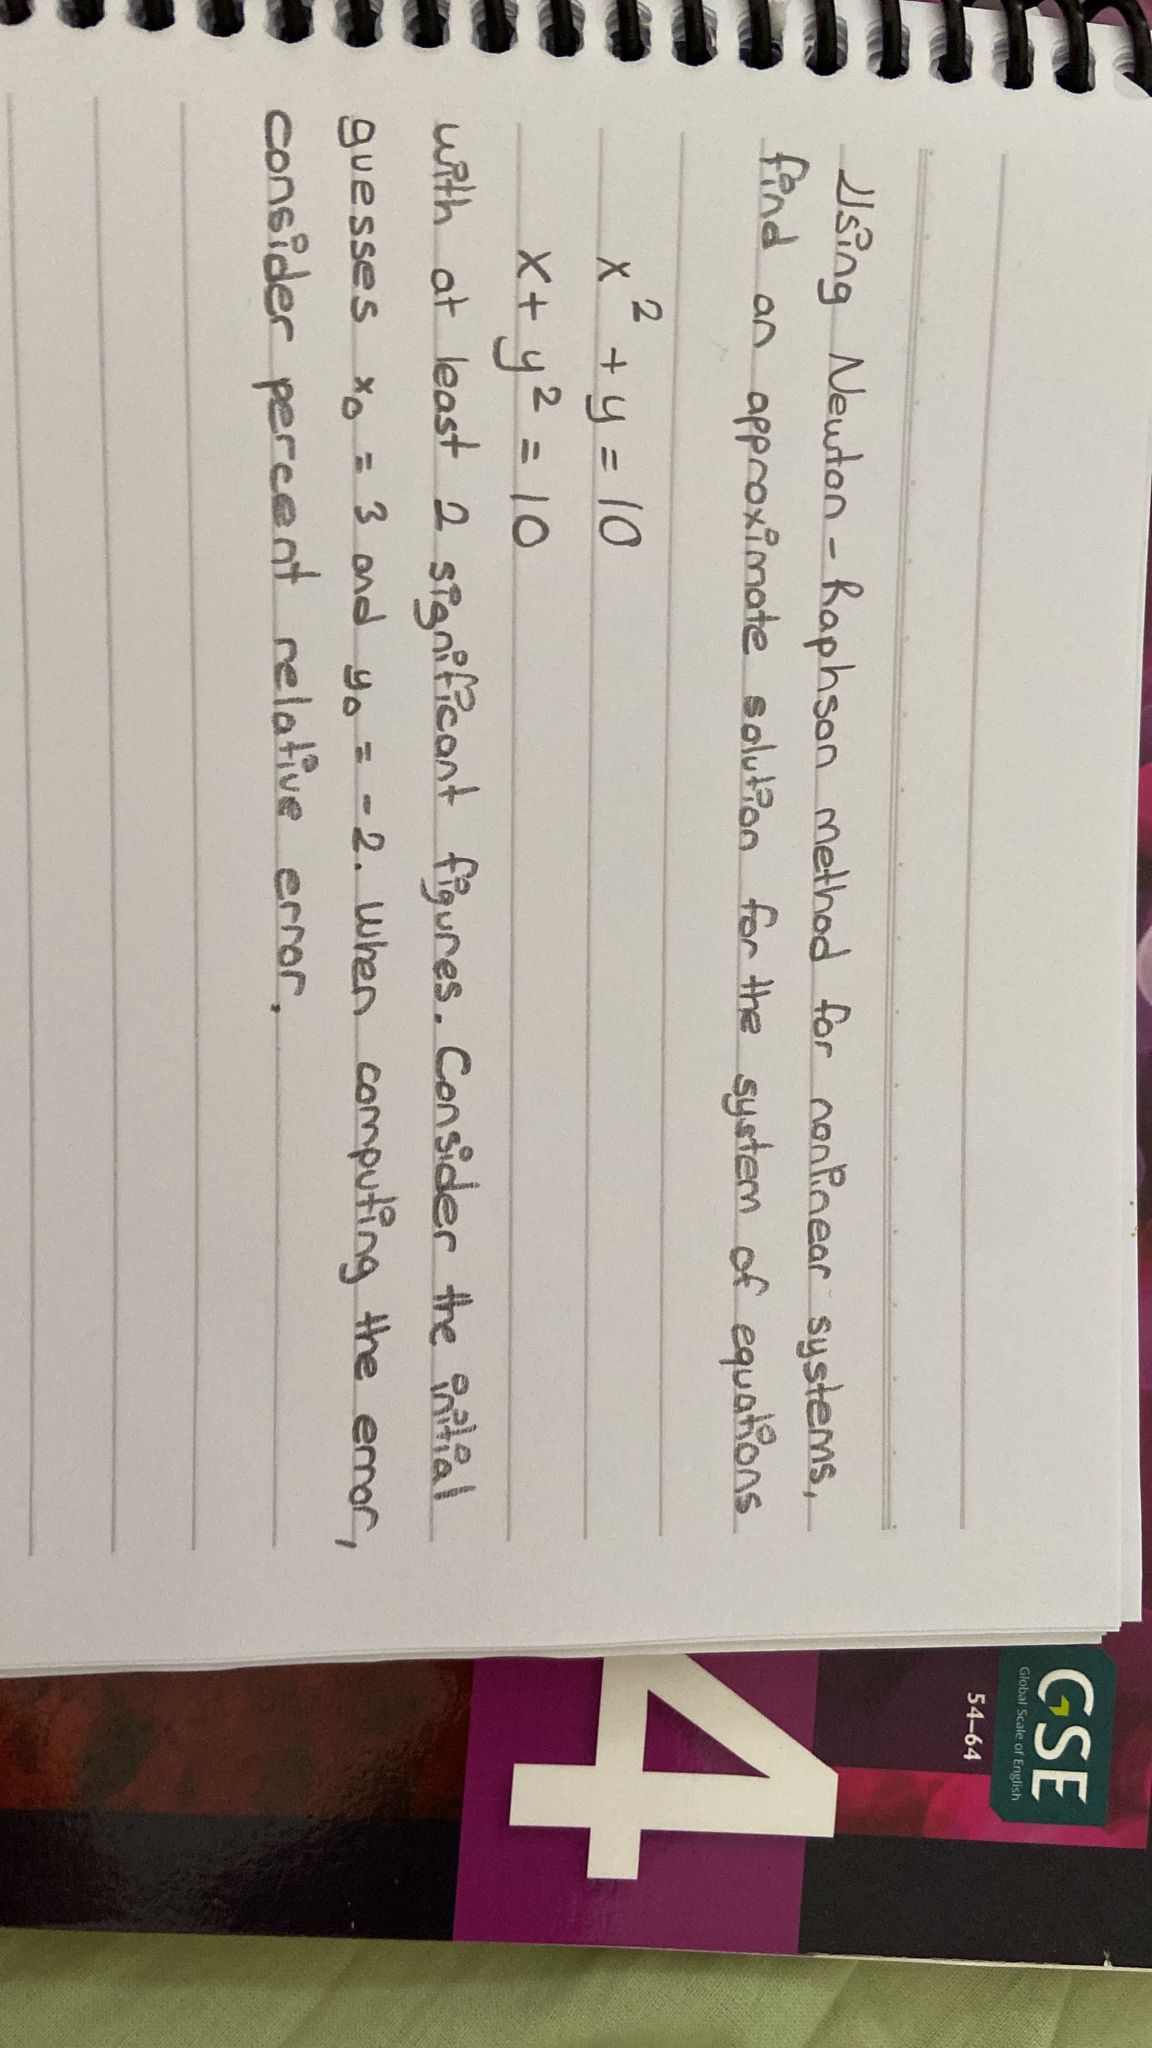 Using Newton-Raphson method for nonlinear systems,
find an approximate solution for the system of equations
x² + y = 10
x + y² = 10
with at least 2 significant figures. Consider the initial
guesses x₀ = 3 and y₀ = -2. When computing the error,
consider percent relative error.
GSE
Global Scale of English
54–64
4